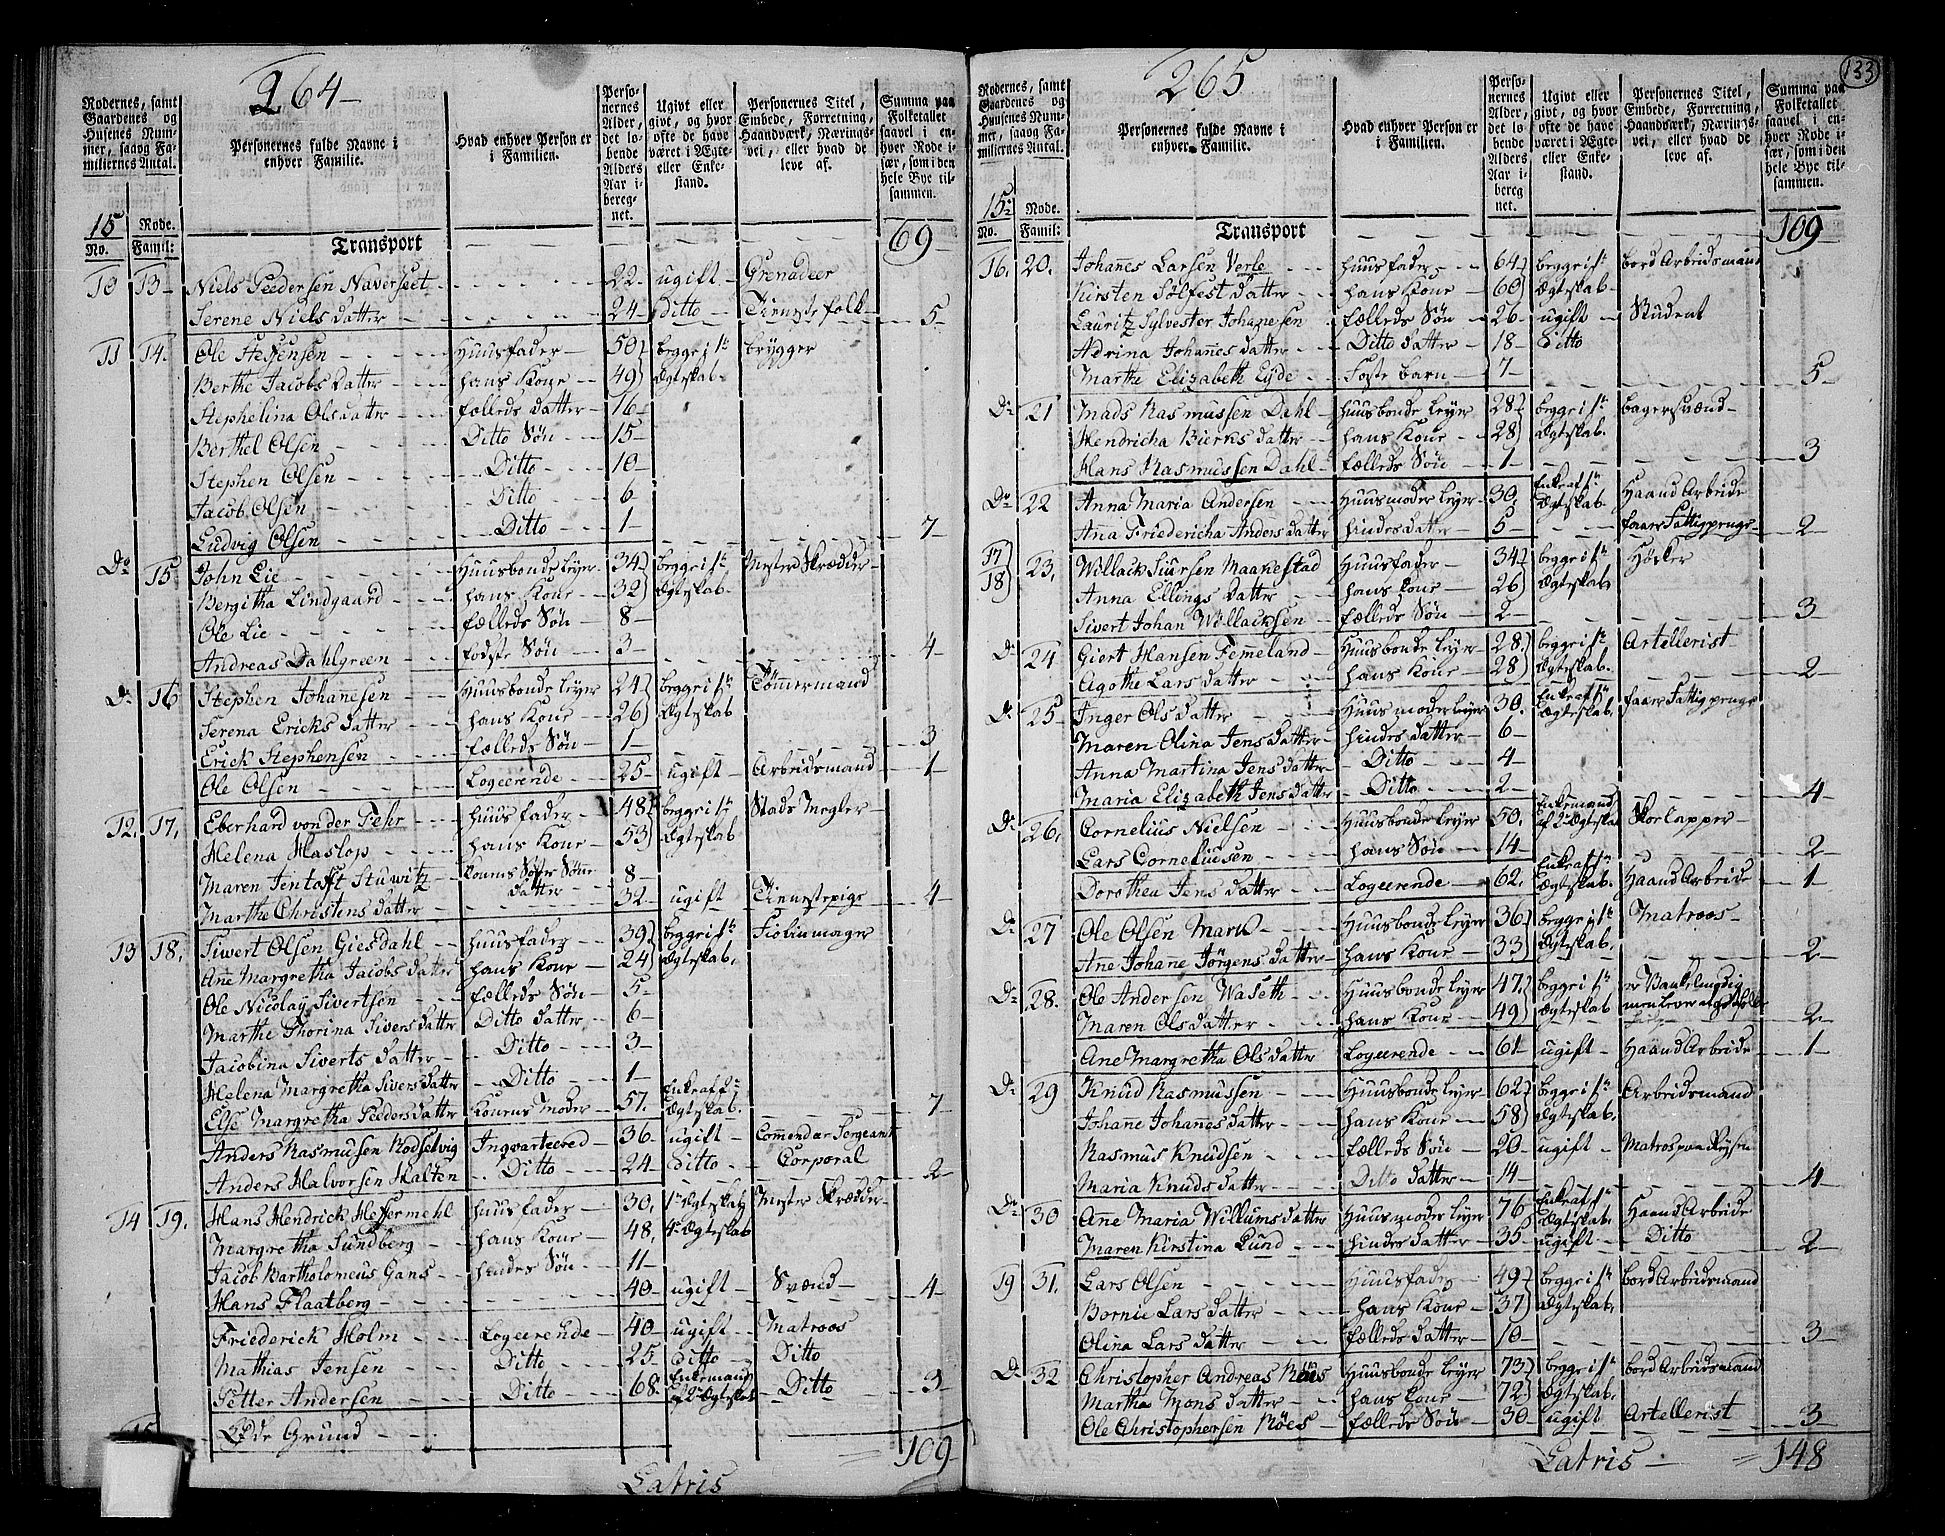 264
Rodernes, samt Gaardenes og Husenes Nummer, saavg Familiernes Antal.
Personernes fulde Navne i enhver Familie.
Hvad enhver Person er i Familien.
Personernes Alder, det lobende Alders Aar iberegnet.
Ugivt eller givt, og hvor ofte de have været i Ægte- eller Enkestand.
Personernes Titel, Embede, Forretning, Haandværk, Næringsvei, eller hvad de leve af.
Summa paa Folketallet saavel i enhver Rode især, som i den hele Bye tilsammen.
15 Rode.
No. Famil:
Transport 69
10 13 Niels Peedersen Naverseet 22 ugift Grenadeer
Serene Niels datter 24 Ditto Tieneste folk 5
11 14. Ole Steffensen Huusfader 50 begge i 1te brygger
Berthe Jacobs Datter hans Kone 49 Ægteskab
Stephelina Olsdatter fælleds datter 16
Berthel Olsen Ditto Søn 15
Stephen Olsen Ditto 10
Jacob Olsen Ditto 6
Ludvig Olsen Ditto 1 7
Do 15 John Lie Huusbonde leyer 34 begge i 1te Mester Skrædder
Bergitha Lindgaard hans Kone 32 Ægteskab
Ole Lie fælleds Søn 8
Andreas Dahlgreen fodste Søn 3 4
Do 16 Stephen Johanesen Huusbonde leyer 24 begge i 1te Tömmermand
Serena Ericks datter hans Kone 26 Ægteskab
Erick Stephensen fælleds Søn 1 3
Ole Olsen Logeerende 25 ugift Arbeidsmand 1
12. 17. Eberhard von der Fehr huusfader 48 begge i 1te Stads Megler
Helena Haslop hans Kone 53 Ægteskab
Maren Jentofft Stuwitz Konens 8
datter
Marthe Christens datter 32 ugift Tienestepige 4
13 18. Siwert Olsen Giesdahl huusfader 39 begge i 1te Fiolinmager
Ane Margretha Jacobs datter hans Kone 24 Ægteskab
Ole Nicolay Sivertsen fælleds Søn 5
Marthe Thorina Sivers datter Ditto datter 6
Jacobina Siverts datter Ditto 3
Helena Margretha Sivers datter Ditto 1
Else Margretha Peeders datter Konens Moder 57. Enke af 2 Ægteskab 7
Anders Rasmusen Rodselvig Inqvarteered 36 ugift Commendær Sergeant
Anders Halvorsen Halten Ditto 24 Ditto Corporal 2
14 19. Hans Hendrick Hessermehl huusfader 30. 1te Ægteskab Mester Skrædder
Margretha Sundberg hans Kone 48. 4de Ægteskab
Jacob Bartholomeus Gans hendes Søn 11
Hans Flaatberg 40 ugift Svænd 4
Friederick Holm Logeerende 40 ugift Matroos
Mathias Jensen Ditto 25 Ditto Ditto
Petter Andersen Ditto 68 Enkemand af 2det Ægteskab Ditto 3
15 Öde Grund
Latris 109
265
133
Rodernes, samt Gaardenes og Husenes Nummer, saavg Familiernes Antal.
Personernes fulde Navne i enhver Familie.
Hvad enhver Person er i Familien.
Personernes Alder, det lobende Alders Aar iberegnet.
Ugivt eller givt, og hvor ofte de have været i Ægte- eller Enkestand.
Personernes Titel, Embede, Forretning, Haandværk, Næringsvei, eller hvad de leve af.
Summa paa Folketallet saavel i enhver Rode især, som i den hele Bye tilsammen.
15 Rode.
No. Famil:
Transport 109
16. 20. Johanes Larsen Verle huusfader 64 begge i 1te bord Arbeidsmand
Kirsten Sölfest datter hans Kone 60 Ægteskab
Lauritz Sylvester Johanesen fælleds Søn 26 ugift Student
Adrina Johanes datter Ditto datter 18 Ditto
Marthe Elizabeth Eyde Foster barn 7 5
Do 21 Mads Rasmussen Dahl huusbonde leyer 28 begge i 1te bagersvænd
Hendricha Bierks datter hans Kone 28 Ægteskab
Hans Rasmussen Dahl fælleds Søn 1 3
Do 22 Anna Maria Andersen Huusmoder leyer 30 Enke af 1te Ægteskab Haand Arbeide
Ana Friedericha Anders datter hendes datter 5 faaer Fattigpenge 2
17 18 23. Willack Siursen Maakestad Huusfader 34 begge i 1te Høcker
Anna Ellings datter hans Kone 26 Ægteskab
Sivert Johan Willacksen fælleds Søn 2 3
Do 24 Giert Hansen Femmeland Huusbonde leyer 28 begge i 1te Artellerist
Agothe Lars datter hans Kone 28 Ægteskab 2
Do 25 Inger Ols datter Huusmoder leyer 30. Enke af 1te Ægteskab. faaer Fattigpenge
Maren Olina Jens datter hendes datter 6
Anna Martina Jens datter Ditto 4
Maria Elizabeth Jens datter Ditto 2 4
Do 26. Cornelius Nielsen Huusbonde leyer 50. Enkemand af 2 Ægteskab Skoelapper
Lars Corneliusen hans Søn 14 2
Dorothea Jens datter Logeerende 62. Enke af 1te Ægteskab. Haand Arbeide 1
Do 27 Ole Olsen Mark Huusbonde leyer 36 begge i 1te Matroos
Ane Johane Jörgens datter hans Kone 33 Ægteskab 2
Do 28. Ole Andersen Waseth Huusbonde leyer 47 begge i 1te er Vankelmodig
Maren Ols datter hans Kone 49 Ægteskab men lever af 2
Ane Margretha Ols datter Logeerende 61 ugift Haand Arbeide 1
Do 29 Knud Rasmussen Huusbonde leyer 62 begge i 1te Arbeidsmand
Johane Johanes datter hans Kone 58 Ægteskab.
Rasmus Knudsen fælleds Søn 20 ugift Matros paa Reysen
Maria Knuds datter Ditto datter 14 4
Do 30 Ane Maria Willums datter Huusmoder leyer 76 Enke af 1te Ægteskab Haand Arbeide
Maren Kirstina Lund hendes datter 35 ugift Ditto 2
19 31. Lars Olsen Huusfader 49 begge i 1te bord Arbeidsmand
Bornie Lars datter hans Kone 37 Ægteskab.
Olina Lars datter fælleds datter 10 3
Do 32 Christopher Andreas Röes Huusbonde leyer 73 begge i 1te bord Arbeidsmand
Martha Mons datter hans Kone 72 Ægteskab.
Ole Christophersen Röes fælleds Søn 30 ugift Artellerist 3
Latris 148